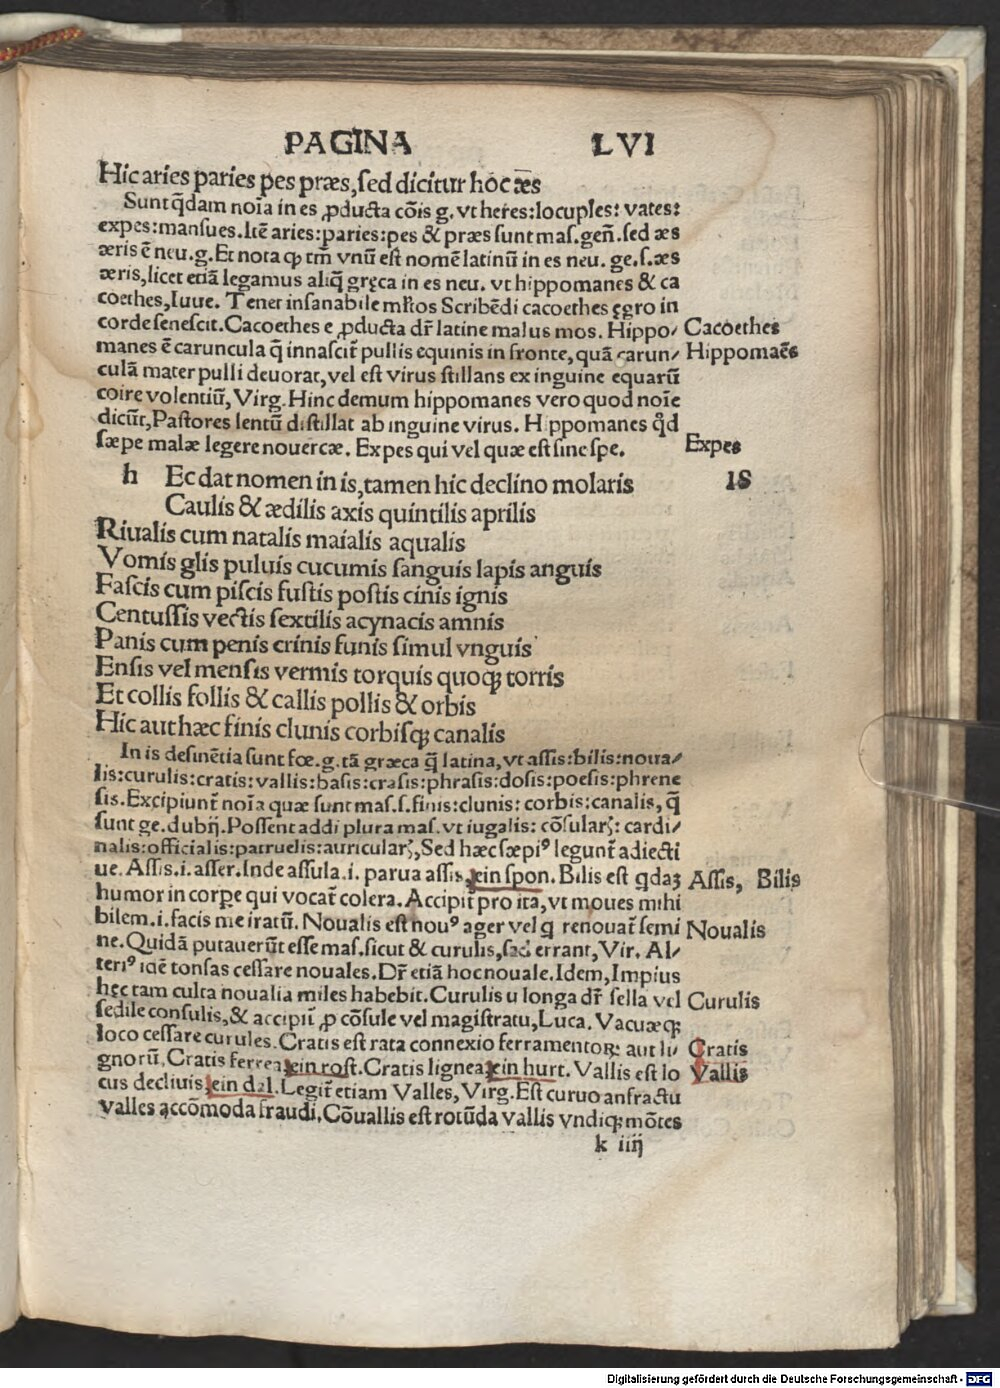 PAGINA LVI
Hic aries paries pes præs, sed dicitur hoc æs
Sunt q̃dam noĩa in es ꝓducta cõis g. vt heres:locuples: vates:
expes:mansues. Itẽ aries:paries:pes & præs sunt mas. geñ. sed æs
æris ẽ neu. g. Et nota ꝙ tm̃ vnũ est nomẽ latinũ in es neu. ge. s. æs
æris, licet etiã legamus aliq̃ gręca in es neu. vt hippomanes & ca
coethes, Iuue. Tenet insanabile ml̃tos Scribẽdi cacoethes ęgro in
corde senescit. Cacoethes e ꝓducta dr̃ latine malus mos. Hippo/ Cacoethes
manes ẽ caruncula q̃ innascit̃ pullis equinis in fronte, quã carun/ Hippomaẽs
culã mater pulli deuorat, vel est virus stillans ex inguine equarũ
coire volentiũ, Virg. Hinc demum hippomanes vero quod noĩe
dicũt, Pastores lentũ distillat ab inguine virus. Hippomanes q̃d
sæpe malæ legere nouercæ. Expes qui vel quæ est sine spe. Expes
h Ec dat nomen in is, tamen hic declino molaris IS
Caulis & ædilis axis quintilis aprilis
Riualis cum natalis maialis aqualis
Vomis glis puluis cucumis sanguis lapis anguis
Fascis cum piscis fustis postis cinis ignis
Centussis vectis sextilis acynacis amnis
Panis cum penis crinis funis simul vnguis
Ensis vel mensis vermis torquis quoqꝫ torris
Et collis follis & callis pollis & orbis
Hic aut hæc finis clunis corbisqꝫ canalis
In is desinẽtia sunt fœ. g. tã græca q̃ latina, vt assis:bilis:noua/
lis:curulis:cratis:vallis:basis:crasis:phrasis:dosis:poesis:phrene
sis. Excipiunt̃ noĩa quæ sunt mas. s. finis:clunis: corbis:canalis, q̃
sunt ge. dubij. Possent addi plura mas. vt iugalis: cõsularꝭ: cardi/
nalis:officialis:patruelis:auricularꝭ, Sed hæc sæpiꝰ legunt̃ adiecti
ue. Assis .i. asser. Inde assula .i. parua assis, ein spon. Bilis est qdaꝫ Assis, Bilis
humor in corꝑe qui vocat̃ colera. Accipit̃ pro ira, vt moues mihi
bilem .i. facis me iratũ. Noualis est nouꝰ ager vel q renouat̃ semi Noualis
ne. Quidã putauerũt esse mas. sicut & curulis, sed errant, Vir. Al/
teriꝰ idẽ tonsas cessare nouales. Dr̃ etiã hoc nouale. Idem, Impius
hęc tam culta noualia miles habebit. Curulis u longa dr̃ sella vel Curulis
sedile consulis, & accipit̃ ꝓ cõsule vel magistratu, Luca. Vacuæqꝫ
loco cessare curules. Cratis est rata connexio ferramentoꝝ aut li/ Cratis
gnorũ, Cratis ferrea ein rost. Cratis lignea ein hurt. Vallis est lo Vallis
cus decliuis, ein dal. Legit̃ etiam Valles, Virg. Est curuo anfractu
valles accõmoda fraudi, Cõuallis est rotũda vallis vndiqꝫ mõtes
k iiij
Digitalisierung gefördert durch die Deutsche Forschungsgemeinschaft - DFG